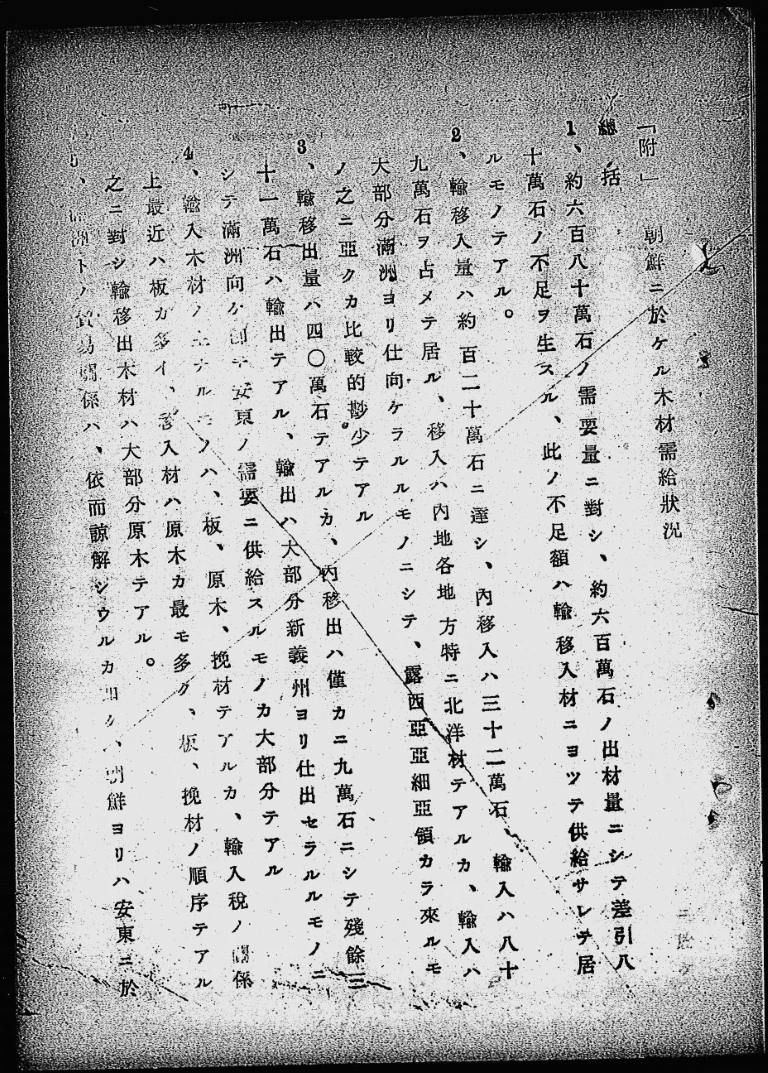 「附」　朝鮮ニ於ケル木材需給狀況
總括
1、約六百八十萬石ノ需要量ニ對シ、約六百萬石ノ出材量ニシテ差引八
十萬石ノ不足ヲ生スル、此ノ不足額ハ輸移入材ニヨツテ供給サレテ居
ルモノテアル。
2、輸移入量ハ約百二十萬石ニ達シ、內移入ハ三十二萬石、輸入ハ八十
九萬石ヲ占メテ居ル、移入ハ內地各地方特ニ北洋材テアルカ、輸入ハ
大部分滿洲ヨリ仕向ケラルルモノニシテ、露西亞亞細亞領カラ來ルモ
ノ之ニ亞クカ比較的尠少テアル。
3、輸移出量ハ四〇萬石テアルカ、內移出ハ僅カニ九萬石ニシテ殘餘三
十一萬石ハ輸出テアル、輸出ハ大部分新義州ヨリ仕出セラルルモノニ
シテ滿洲向ケ卽チ安東ノ需要ニ供給スルモノカ大部分テアル
4、輸入木材ノ主ナルモノハ、板、原木、挽材テアルカ、輸入稅ノ關係
上最近ハ板カ多イ、移入材ハ原木カ最モ多ク、板、挽材ノ順序テアル
之ニ對シ輸移出木材ハ大部分原木テアル。
5、滿洲トノ貿易關係ハ、依而諒解シウルカ如ク、朝鮮ヨリハ安東ニ於